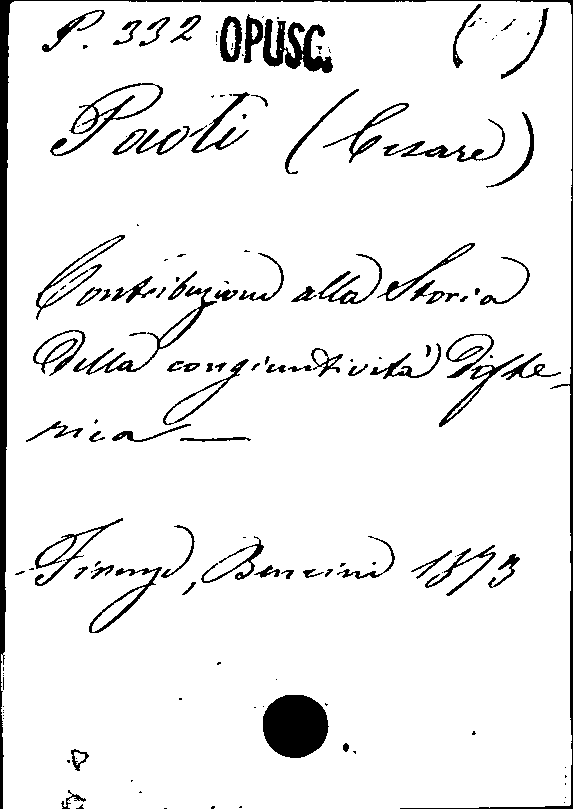 P. 332 OPUSC.
Paoli (Cesare)
Contribuzione alla Storia
della congiuntività difte-
rica —
Firenze, Bencini 1873